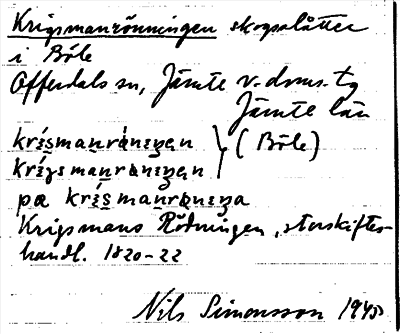 Krigsmanrönningen skogsslåtter
i Böle
Offerdals sn, Jämte v. doms. tg
Jämte län
krı́s̱manṟåneŋen } (Böle)
krı́gsmanṟåneŋen
pa krı́s̱manṟåneŋa
Krigsmans Rödningen, storskiftes-
handl. 1820-22
Nils Simonsson 1945